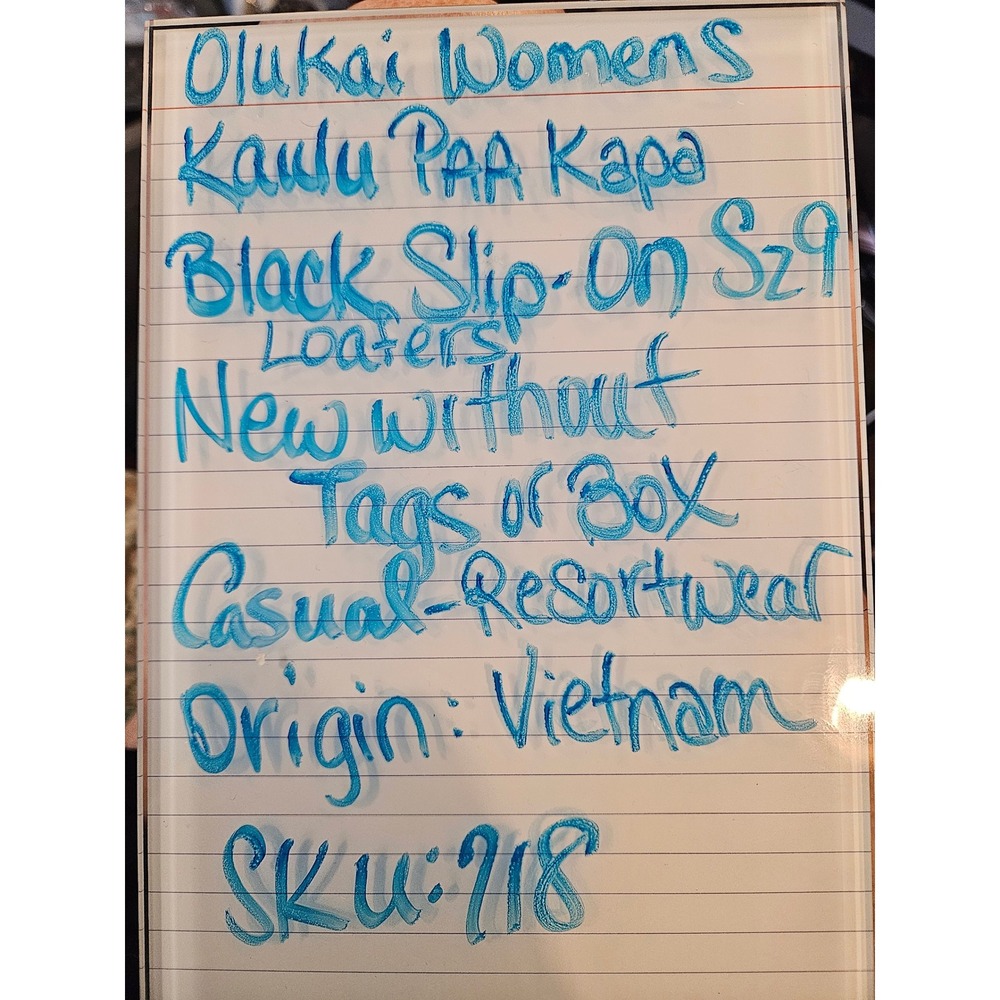 Olukai Womens
Kaulu PAA Kapa
Black Slip-On Sz9
Loafers
New without
Tags or Box
Casual-Resortwear
Origin: Vietnam
SKU: 918